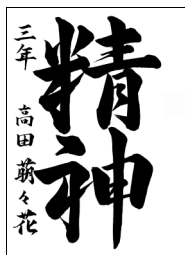 精神
三年 高田 萌々花